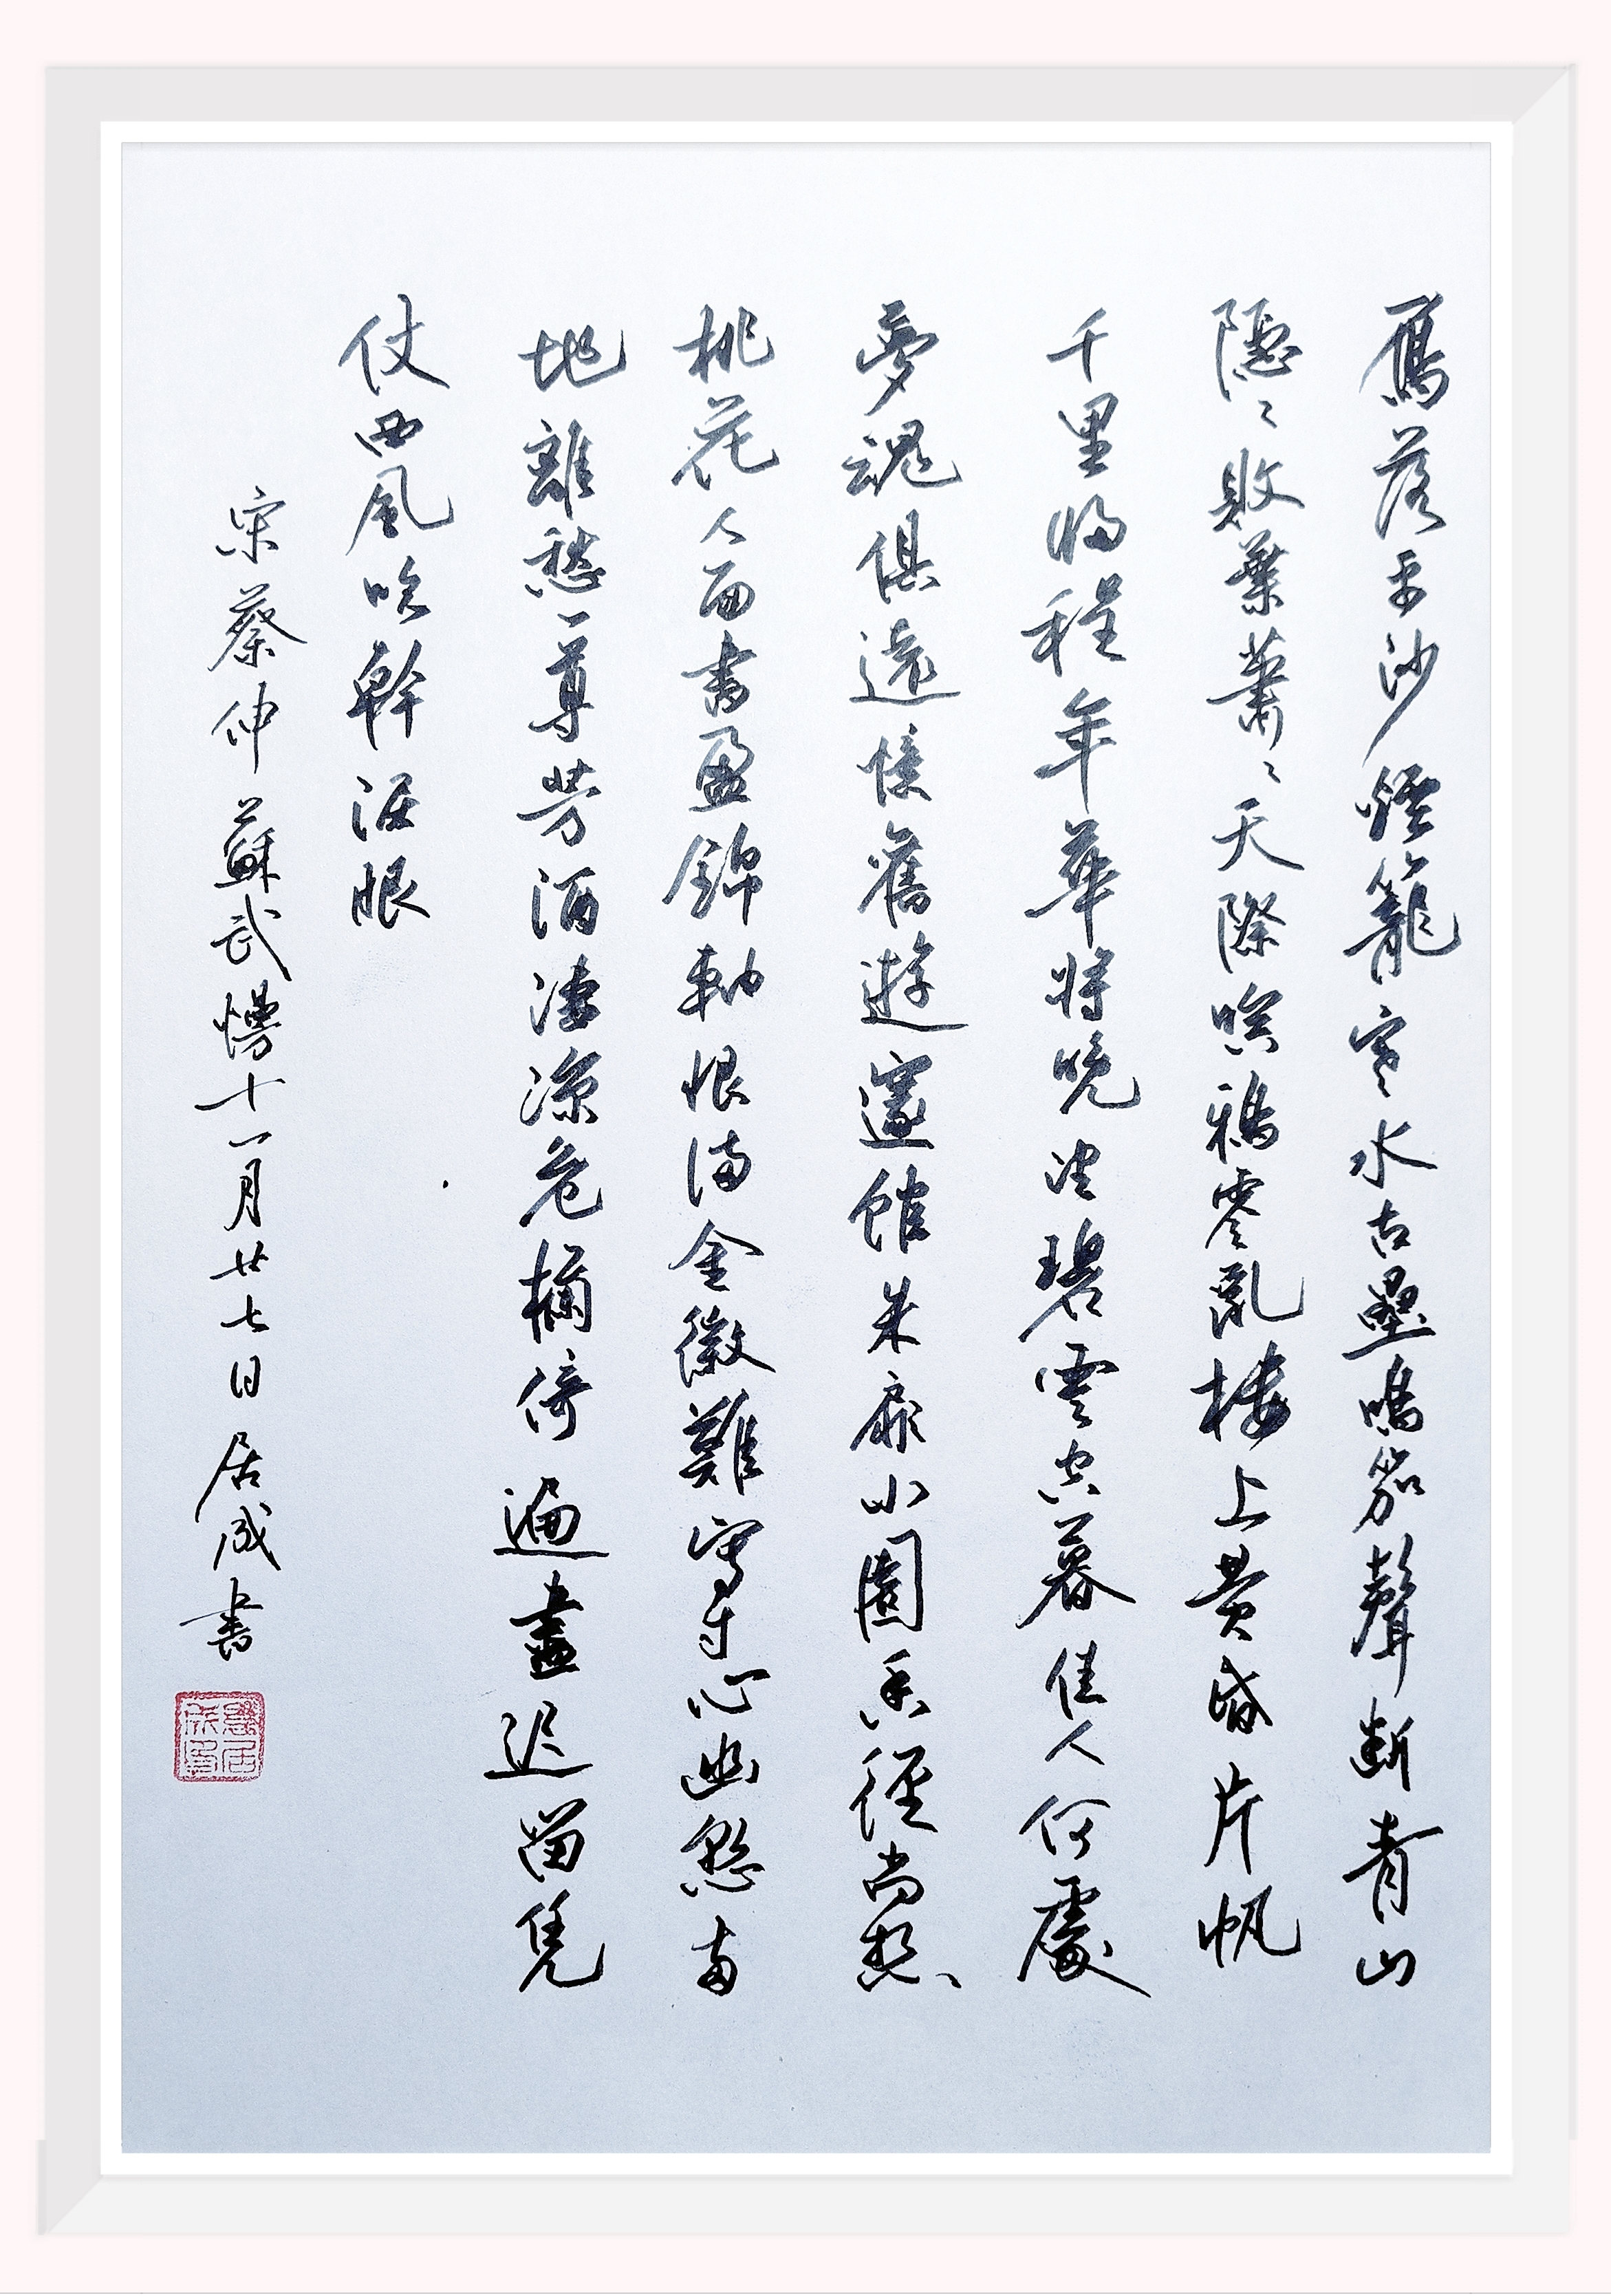 鴈落平沙煙籠寒水古壘鳴笳聲斷青山
隱〻敗葉蕭〻天際暝鴉零亂楼上黄昏片帆
千里歸程年華將晚望碧雲空暮佳人何處
夢魂俱遠憶舊遊邃館朱扉小園香徑尚想
桃花人面書盈錦軸恨滿金徽難寫寸心幽怨兩
地離愁一尊芳酒淒涼危欄倚遍盡迟留凭
仗西風吹幹淚眼
宋蔡伸蘇武慢十一月廿七日居成書